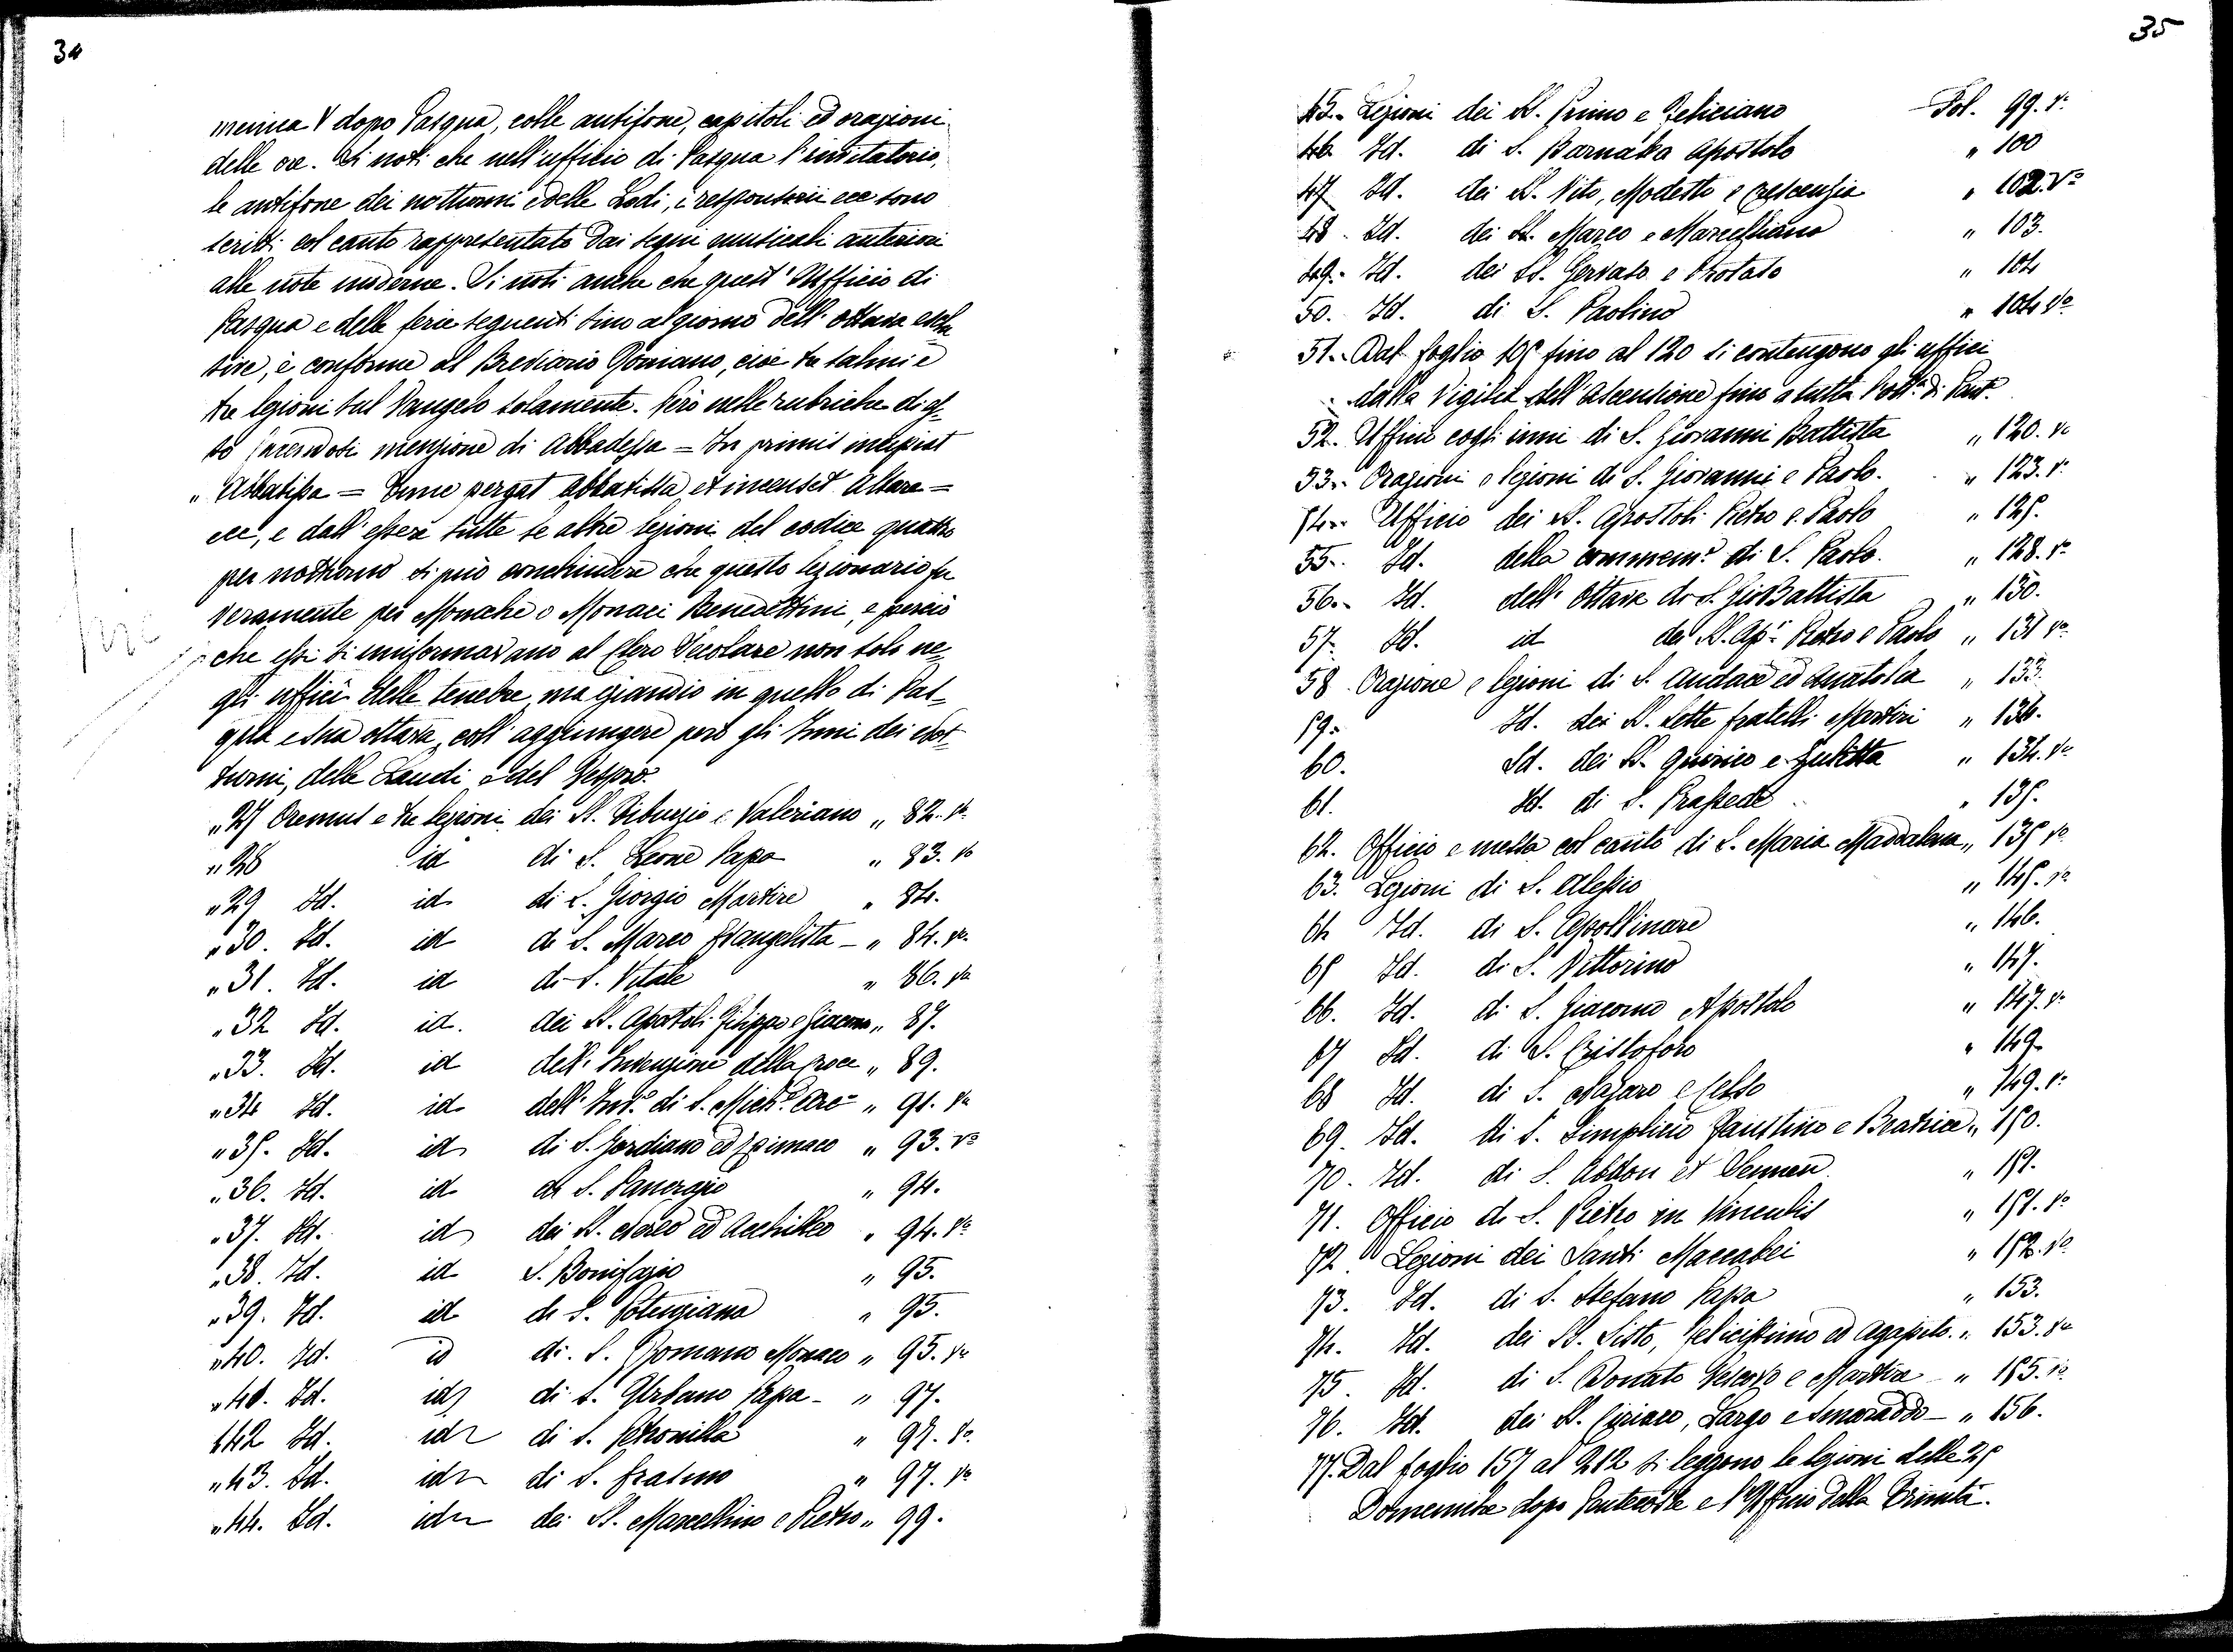 34
menica V dopo Pasqua, colle antifone, capitoli ed orazioni
delle ore. Si noti che nell'ufficio di Pasqua l'invitatorio,
le antifone dei notturni e delle Lodi, i responsorii ecc sono
scritti col canto rappresentato dai segni musicali anteriori
alle note moderne. Si noti anche che quest'Ufficio di
Pasqua e delle ferie seguenti sino al giorno dell'ottava esclu
sive, è conforme al Breviario Romano, cioè tre salmi e
tre lezioni sul Vangelo solamente. Però nelle rubriche di q
to facendosi menzione di Abbadessa = In primis incipiat
„ Abbatissa = tunc pergat abbatissa et incenset Altare =
ecc, e dall'essere tutte le altre lezioni del codice quattro
per notturno si può conchiudere che questo lezionario fu
veramente per Monache o Monaci Benedettini, e perciò
che essi si uniformavano al Clero Secolare non solo ne-
gli ufficii delle tenebre, ma eziandio in quello di Pas-
qua e sua ottava, coll'aggiungere però gli Inni dei Not-
turni, delle Laudi e del Vespro.
„ 27 Oremus e tre lezioni dei SS. Tiburzio e Valeriano „ 82. vo
„ 28 id di S. Leone Papa „ 83. vo
„ 29 Id. id di S. Giorgio Martire „ 84.
„ 30. Id. id di S. Marco Evangelista - „ 84. vo
„ 31. Id. id di S. Vitale „ 86. vo
„ 32 Id. id. dei SS. Apostoli Filippo e Giacomo „ 87.
„ 33. Id. id dell'Invenzione della Croce „ 89.
„ 34 Id. id dell'Inv.e di S. Mich.e Arc= „ 91. vo
„ 35. Id. id di S. Gordiano ed Epimaco „ 93. vo
„ 36. Id. id di S. Pancrazio „ 94.
„ 37. Id. id dei SS. Nereo ed Acchilleo „ 94. vo
„ 38. Id. id S. Bonifazio „ 95.
„ 39. Id. id di S. Potenziana „ 95.
„ 40. Id. id di S. Romano Monaco „ 95. vo
„ 41. Id. id di S. Urbano Papa - „ 97.
„ 42 Id. id di S. Petronilla „ 97. vo
„ 43. Id. id di S. Erasmo „ 97. vo
„ 44. Id. id dei SS. Marcellino e Pietro „ 99.
35
45. Lezioni dei SS. Primo e Feliciano Fol. 99. vo
46 Id. di S. Barnaba Apostolo „ 100
47 Id. dei SS. Vito, Modesto e Crescenzia „ 102. vo
48. Id. dei SS. Marco e Marcelliano „ 103.
49. Id. dei SS. Gervaso e Protaso „ 104
50. Id. di S. Paolino „ 104 vo
51. Dal foglio 105 fino al 120 si contengono gli ufficii
dalla Vigilia dell'Ascensione fino a tutta l'ott.a di Pent.e
52. Ufficii cogli inni di S. Giovanni Battista „ 120. vo
53. Orazioni e lezioni di S. Giovanni e Paolo. „ 123. vo
54. Ufficio dei SS. Apostoli Pietro e Paolo „ 125.
55. Id. della commem.e di S. Paolo. „ 128. vo
56. Id. dell'Ottava di S. Gio Battista „ 130.
57. Id. id dei SS. Ap.i Pietro e Paolo „ 131 vo
58. Orazione e lezioni di S. Audace ed Anatolia „ 133.
59. Id. dei SS. Sette fratelli Martiri „ 134.
60. Id. dei SS. Quirico e Julitta „ 134. vo
61. Id. di S. Prassede „ 135.
62. Officio e messa col canto di S. Maria Maddalena „ 135 vo
63. Lezioni di S. Alessio „ 145. vo
64 Id. di S. Apollinare „ 146.
65 Id. di S. Vittorino „ 147.
66. Id. di S. Giacomo Apostolo „ 147. vo
67 Id. di S. Cristoforo „ 149.
68 Id. di S. Nazaro e Celso „ 149. vo
69. Id. di S. Simplicio Faustino e Beatrice „ 150.
70. Id. di S. Abdon et Sennen „ 151.
71. Officio di S. Pietro in Vinculis „ 151. vo
72. Lezioni dei Santi Maccabei „ 152. vo
73. Id. di S. Stefano Papa „ 153.
74. Id. dei SS. Sisto, Felicissimo ed Agapito. „ 153. vo
75. Id. di S. Donato Vescovo e Martire „ 155. vo
76. Id. dei SS. Ciriaco, Largo e Smaraddo - „ 156.
77. Dal foglio 157 al 212 si leggono le lezioni delle 25
Domeniche dopo Pentecoste e l'Officio della Trinità.